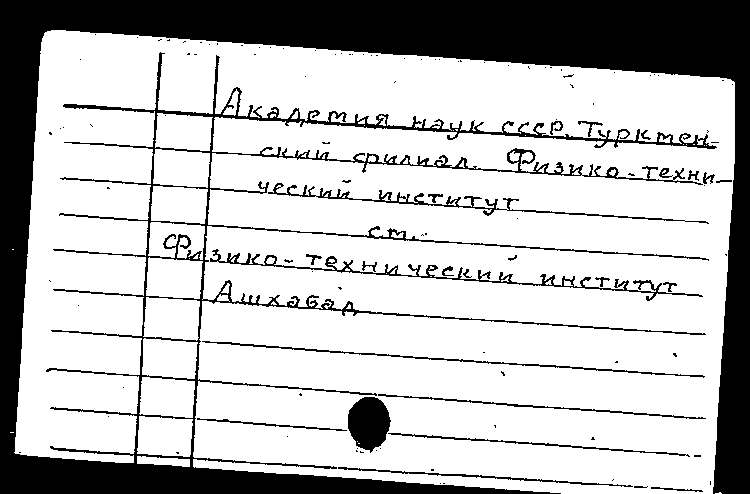 Академия наук СССР. Туркмен-
ский филиал. Физико-техни-
ческий институт
см.
Физико-технический институт
Ашхабад